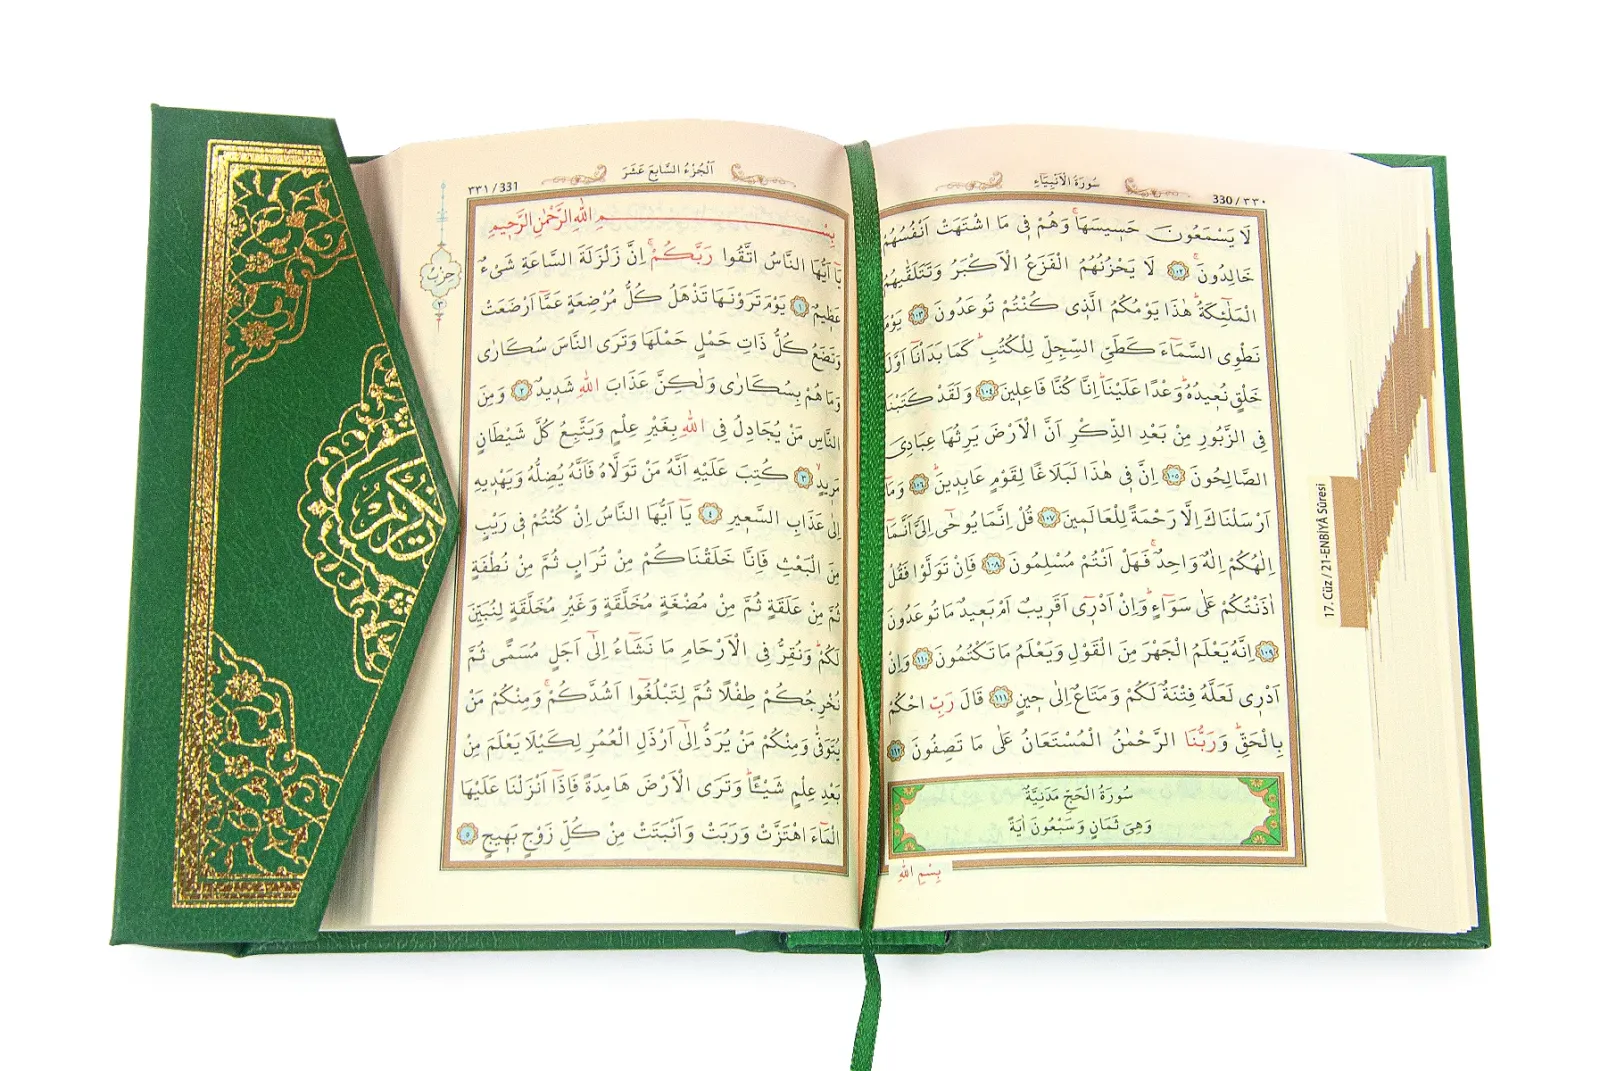 سُورَةُ الْاَنْبِيَٓاءِ
330 / ٣٣٠
لَا يَسْمَعُونَ حَس۪يسَهَاۚ وَهُمْ ف۪ي مَا اشْتَهَتْ اَنْفُسُهُمْ
خَالِدُونَۚ ﴿١٠٢﴾ لَا يَحْزُنُهُمُ الْفَزَعُ الْاَكْبَرُ وَتَتَلَقّٰيهُمُ
الْمَلٰٓئِكَةُۜ هٰذَا يَوْمُكُمُ الَّذ۪ي كُنْتُمْ تُوعَدُونَ ﴿١٠٣﴾ يَوْمَ
نَطْوِي السَّمَٓاءَ كَطَيِّ السِّجِلِّ لِلْكُتُبِۜ كَمَا بَدَأْنَٓا اَوَّلَ
خَلْقٍ نُع۪يدُهُۜ وَعْدًا عَلَيْنَاۜ اِنَّا كُنَّا فَاعِل۪ينَ ﴿١٠٤﴾ وَلَقَدْ كَتَبْنَا
فِي الزَّبُورِ مِنْ بَعْدِ الذِّكْرِ اَنَّ الْاَرْضَ يَرِثُهَا عِبَادِيَ
الصَّالِحُونَ ﴿١٠٥﴾ اِنَّ ف۪ي هٰذَا لَبَلَاغًا لِقَوْمٍ عَابِد۪ينَۜ ﴿١٠٦﴾ وَمَٓا
اَرْسَلْنَاكَ اِلَّا رَحْمَةً لِلْعَالَم۪ينَ ﴿١٠٧﴾ قُلْ اِنَّمَا يُوحٰٓى اِلَيَّ اَنَّمَٓا
اِلٰهُكُمْ اِلٰهٌ وَاحِدٌۚ فَهَلْ اَنْتُمْ مُسْلِمُونَ ﴿١٠٨﴾ فَاِنْ تَوَلَّوْا فَقُلْ
اٰذَنْتُكُمْ عَلٰى سَوَٓاءٍۜ وَاِنْ اَدْر۪ٓي اَقَر۪يبٌ اَمْ بَع۪يدٌ مَا تُوعَدُونَ
﴿١٠٩﴾ اِنَّهُ يَعْلَمُ الْجَهْرَ مِنَ الْقَوْلِ وَيَعْلَمُ مَا تَكْتُمُونَ ﴿١١٠﴾ وَاِنْ
اَدْر۪ي لَعَلَّهُ فِتْنَةٌ لَكُمْ وَمَتَاعٌ اِلٰى ح۪ينٍ ﴿١١١﴾ قَالَ رَبِّ احْكُمْ
بِالْحَقِّۜ وَرَبُّنَا الرَّحْمٰنُ الْمُسْتَعَانُ عَلٰى مَا تَصِفُونَ ﴿١١٢﴾
سُورَةُ الْحَجِّ مَدَنِيَّةٌ
وَهِيَ ثَمَانٍ وَسَبْعُونَ اٰيَةً
بِسْمِ اللّٰهِ
17. Cüz / 21-ENBİYÂ Sûresi
اَلْجُزْءُ السَّابِعَ عَشَرَ
٣٣١ / 331
حِزْبٌ
٣
بِسْمِ اللّٰهِ الرَّحْمٰنِ الرَّح۪يمِ
يَٓا اَيُّهَا النَّاسُ اتَّقُوا رَبَّكُمْۚ اِنَّ زَلْزَلَةَ السَّاعَةِ شَيْءٌ
عَظ۪يمٌ ﴿١﴾ يَوْمَ تَرَوْنَهَا تَذْهَلُ كُلُّ مُرْضِعَةٍ عَمَّٓا اَرْضَعَتْ
وَتَضَعُ كُلُّ ذَاتِ حَمْلٍ حَمْلَهَا وَتَرَى النَّاسَ سُكَارٰى
وَمَا هُمْ بِسُكَارٰى وَلٰكِنَّ عَذَابَ اللّٰهِ شَد۪يدٌ ﴿٢﴾ وَمِنَ
النَّاسِ مَنْ يُجَادِلُ فِي اللّٰهِ بِغَيْرِ عِلْمٍ وَيَتَّبِعُ كُلَّ شَيْطَانٍ
مَر۪يدٍۙ ﴿٣﴾ كُتِبَ عَلَيْهِ اَنَّهُ مَنْ تَوَلَّاهُ فَاَنَّهُ يُضِلُّهُ وَيَهْد۪يهِ
اِلٰى عَذَابِ السَّع۪يرِ ﴿٤﴾ يَٓا اَيُّهَا النَّاسُ اِنْ كُنْتُمْ ف۪ي رَيْبٍ
مِنَ الْبَعْثِ فَاِنَّا خَلَقْنَاكُمْ مِنْ تُرَابٍ ثُمَّ مِنْ نُطْفَةٍ
ثُمَّ مِنْ عَلَقَةٍ ثُمَّ مِنْ مُضْغَةٍ مُخَلَّقَةٍ وَغَيْرِ مُخَلَّقَةٍ لِنُبَيِّنَ
لَكُمْۜ وَنُقِرُّ فِي الْاَرْحَامِ مَا نَشَٓاءُ اِلٰٓى اَجَلٍ مُسَمًّى ثُمَّ
نُخْرِجُكُمْ طِفْلًا ثُمَّ لِتَبْلُغُٓوا اَشُدَّكُمْۚ وَمِنْكُمْ مَنْ
يُتَوَفّٰى وَمِنْكُمْ مَنْ يُرَدُّ اِلٰٓى اَرْذَلِ الْعُمُرِ لِكَيْلَا يَعْلَمَ مِنْ
بَعْدِ عِلْمٍ شَيْـًٔاۜ وَتَرَى الْاَرْضَ هَامِدَةً فَاِذَٓا اَنْزَلْنَا عَلَيْهَا
الْمَٓاءَ اهْتَزَّتْ وَرَبَتْ وَاَنْبَتَتْ مِنْ كُلِّ زَوْجٍ بَه۪يجٍ ﴿٥﴾
كريم